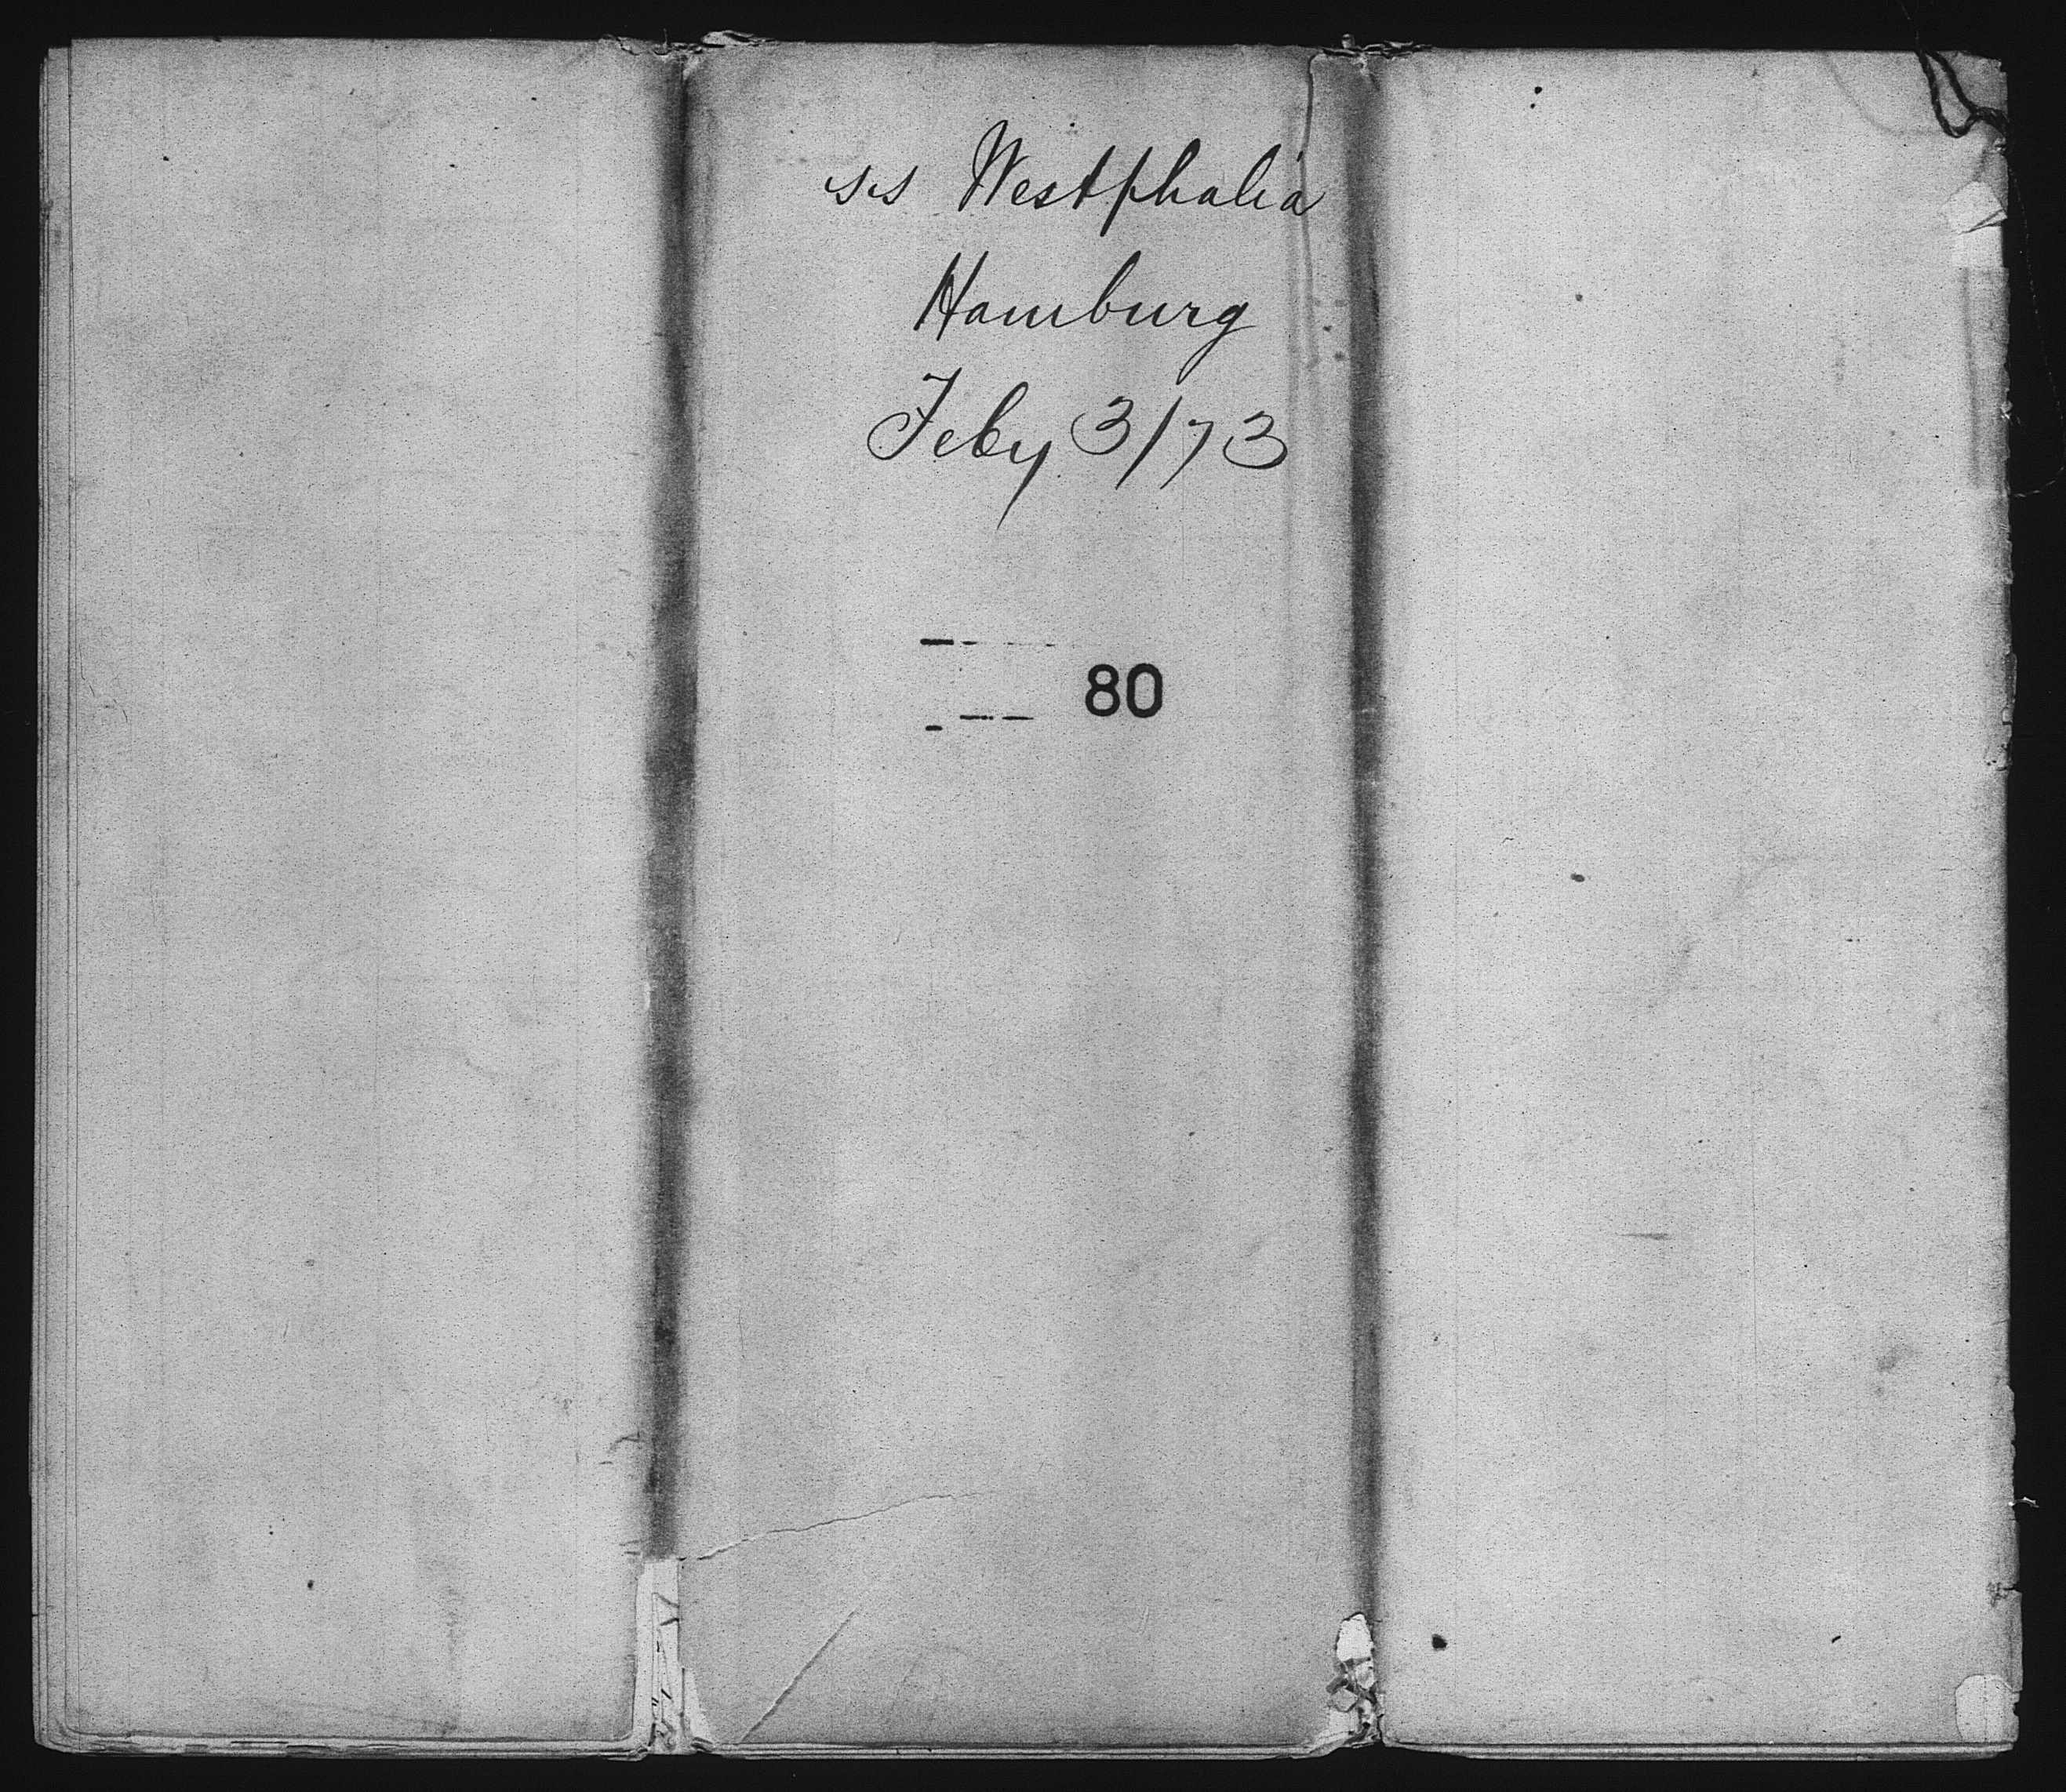 ss Westphalia
Hamburg
Feby 3/73
80